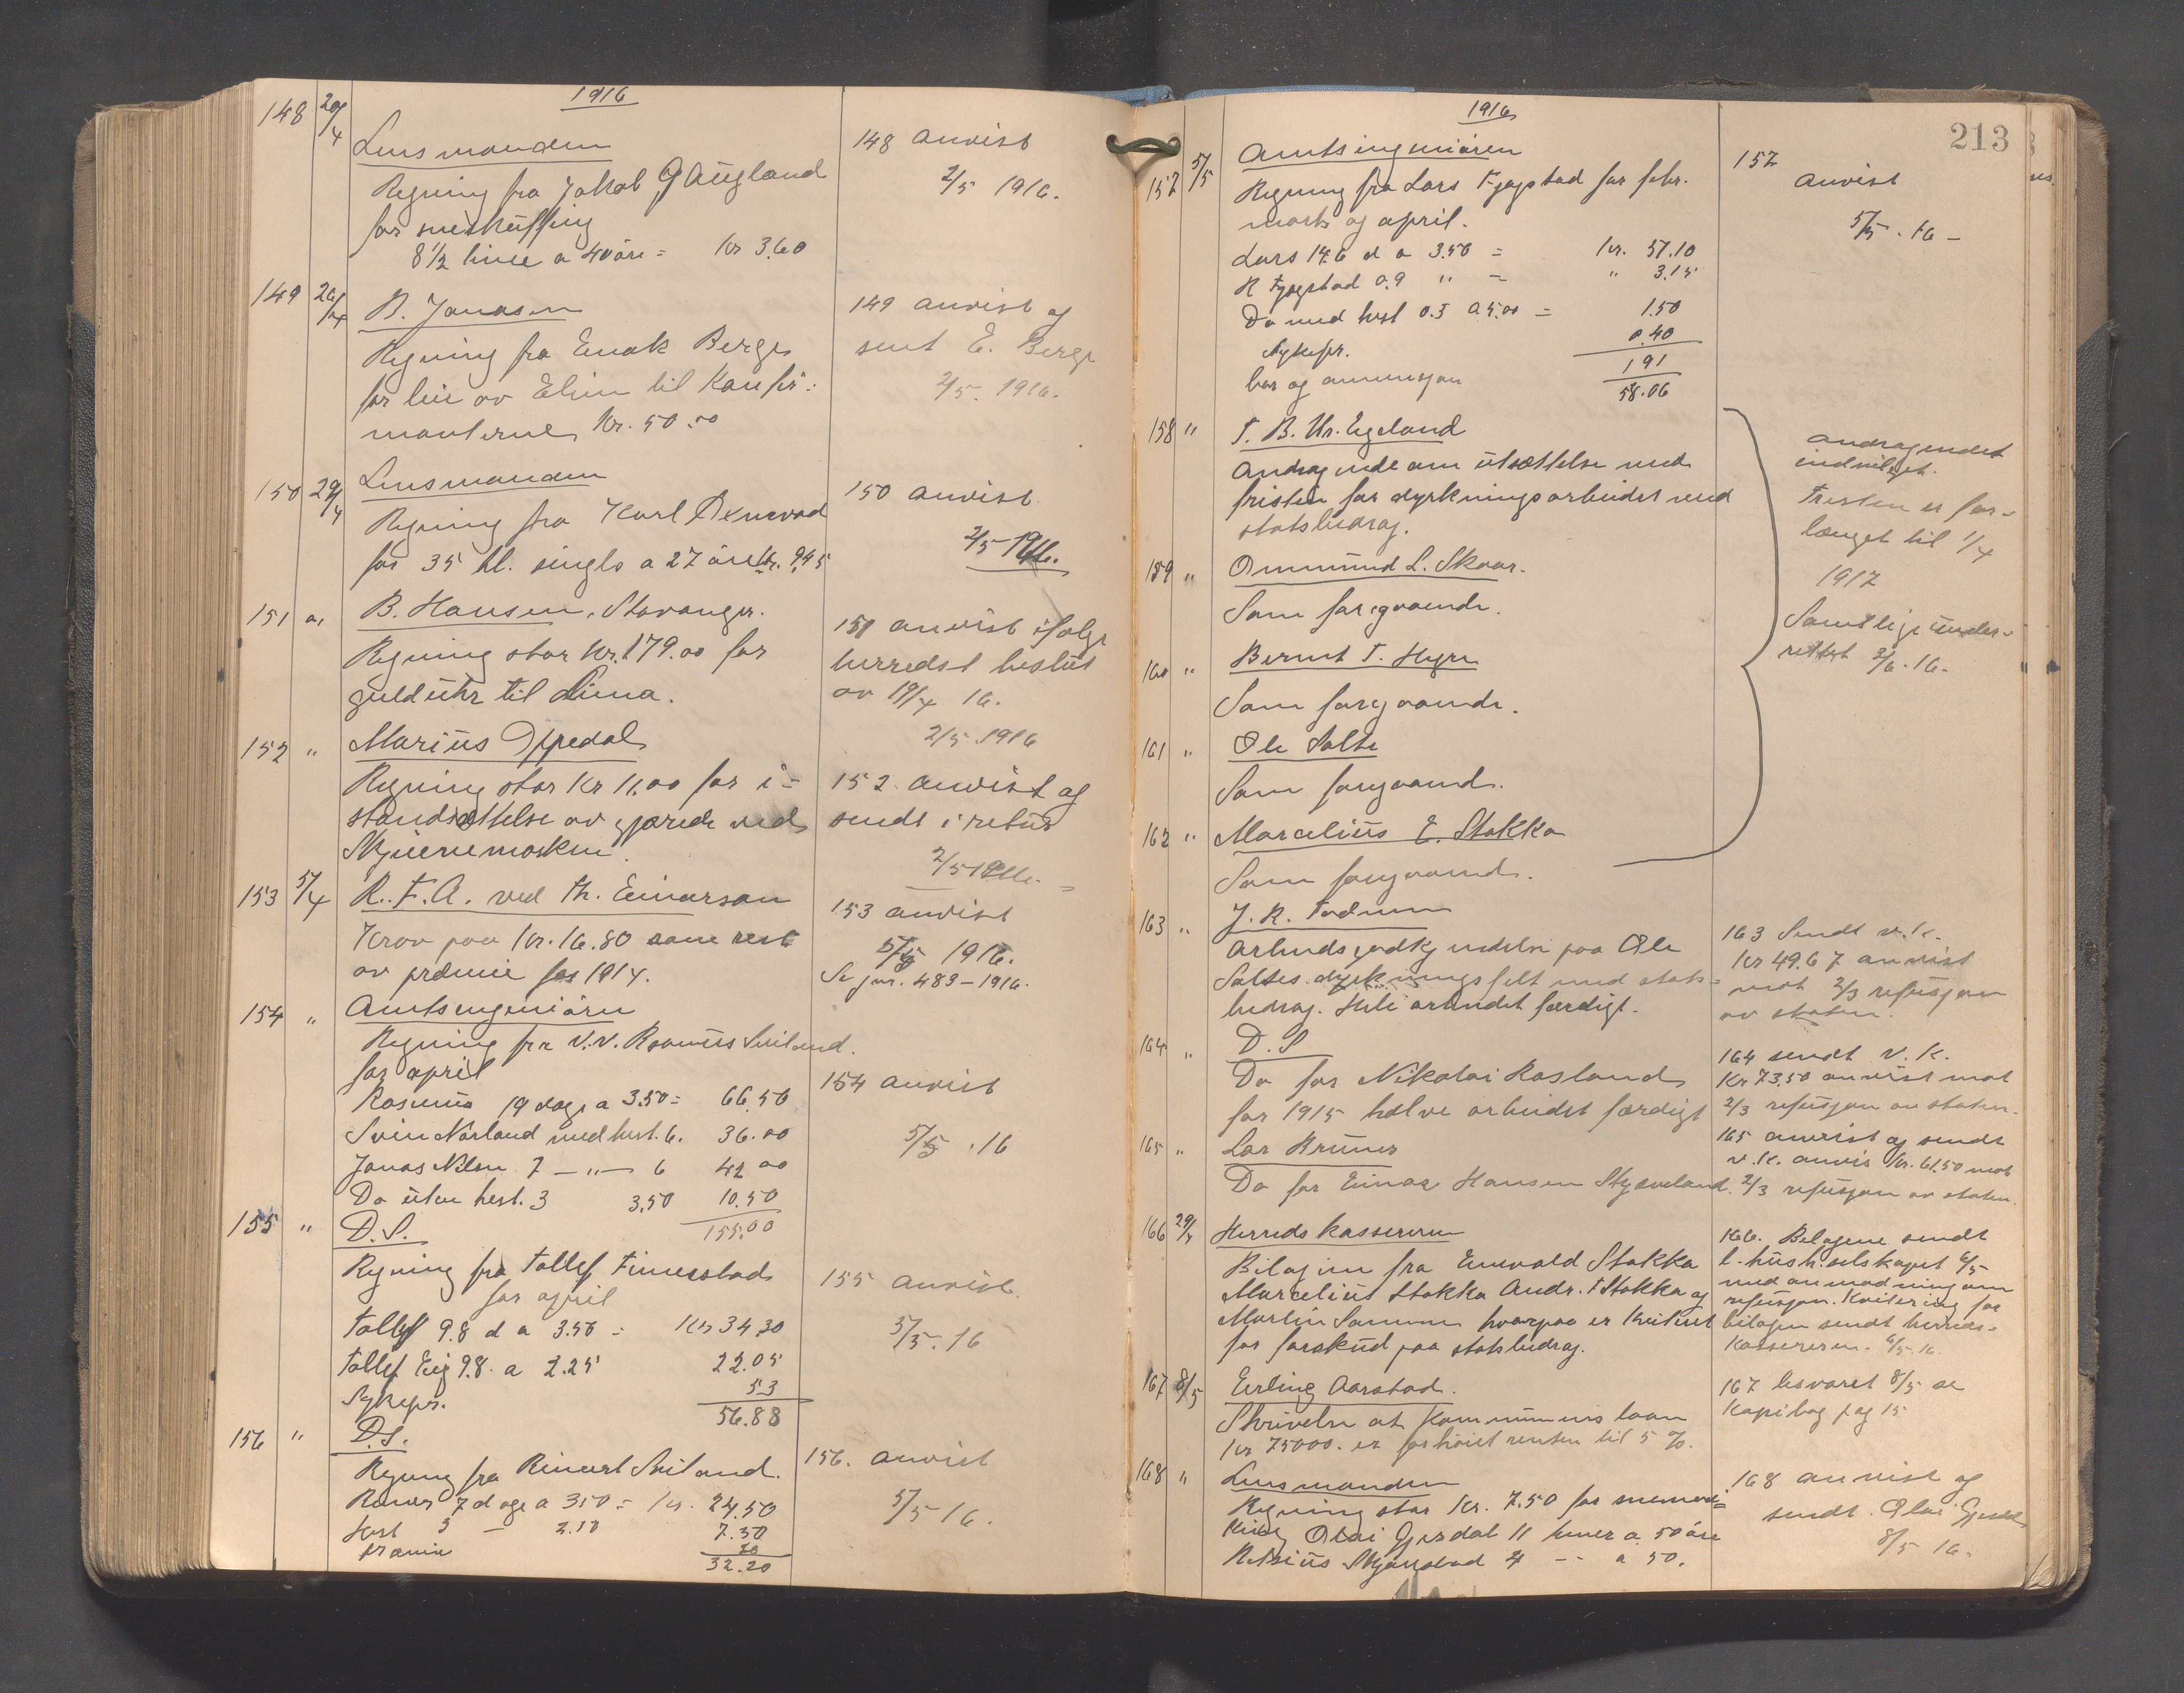 1916
148 20/4
Lensmanden
Regning fra Jakob Gaugland
for sneskuffing
8 1/2 time a 40 øre = Kr 3.60
148 anvist
2/5 1916.
149 26/4 B. Jonasen
Regning fra Enok Berge
for leie av Elim til Konfir-
manterne Kr. 50.00
149 anvist og
sent E. Berge
2/5. 1916.
150 29/4 Lensmanden
Regning fra Karl
for 35 hl. singls a 27 øre Kr. 9.45
150 anvist
2/5 1916.
151 B. Hansen, Stavanger.
Regning stor Kr. 179.00 for
guldühr til Lima.
151 anvist ifølge
herredst beslut
av 19/4 16.
2/5 1916
152 " Marius Oppedal
Regning stor Kr 11.00 for i-
standsættelse av gjærede ved
152 anvist og
sendt i retur
2/5 1916.
153 5/4 R.F.A. ved Th. Einarson
Krav paa Kr. 16.80 som rest
av præmie for 1914.
153 anvist
5/5 1916.
Se jur. 483-1916.
154 " Amtsingeniøren
Regning fra v.v. Rasmus Sviland.
for april
Rasmus 19 dage a 3.50 = 66.50
Svein Norland med hest. 6. 36.00
Jonas Nilsen 7 — " — 6 42 00
Do uten hest. 3 3.50 10.50
155.00
154 anvist
5/5 .16
155 " D.S.
Regning fra Tollef Finnestad
for april
Tollef 9.8 d a 3.50 = Kr 34.30
Tollef Eig 9.8. a 2.25 22.05
Sykepr. 53
56.88
155 anvist.
5/5. 16
156 " D.S.
Regning fra Reinert Sviland.
7 dage a 3.50 = Kr. 24.50
Hest 3 — 2.50 7.50
præmie 20
32.20
156. anvist
5/5 16.
1916
213
157 5/5 Amtsingeniøren
Regning fra Lars Fjogstad for febr.
marts og april.
Lars 14.6 d a 3.50 = Kr. 51.10
R Fjogstad 0.9 " = " 3.15
Do med hest 0.3 a 5.00 = 1.50
Sykepr. 0.40
bør og ammunisjon 1 91
58.06
157
anvist
5/5. 16 -
158 " T. B. Hr. Egeland
Andragende om utsættelse med
fristen for dyrkningsarbeidet med
statsbidrag.
159 " Ommund L. Skaar.
Som foregaaende.
160 " Bernt T. Hegre
Som foregaaende.
161 " Ole Salte
Som foregaaende.
162 " Marcelius E. Stokka
Som foregaaende.
andragendet
indvilget.
Fristen er for-
længet til 1/4
1917
Samtlige under-
rettet 3/6. 16.
163 " J. R. Todnem
Arbeidsgodkjendelse paa Ole
Saltes dyrkningsfelt med stats-
bidrag. Hele arbeidet færdigt.
163 Sendt v.K.
Kr 49.67 anvist
mot 2/3 refusjon
av staten.
164 " D.S
Do for Nikolai Rosland
for 1915 halve arbeidet færdigt
164 sendt v. K.
Kr 73.50 anvist mot
2/3 refusjon av staten.
165 " Lars Brunes
Do for Einar Hansen Skjæveland.
165 anvist og sendt
v.K. anvis Kr. 61.50 mot
2/3 refusjon av staten.
166 29/4 Herredskassereren
Bilagene fra Enevald Stokka
Marcelius Stokka Andr. T Stokka og
Martin Sømme hvorpaa er kvitert
for forskud paa statsbidrag.
166. Bilagene sendt
l. hush. selskapet 6/5
med anmodning om
refusjon. Kvitering for
bilagen sendt herreds-
kassereren. 6/5 16.
167 8/5 Erling Aarstad.
Skrivelse at Kommunens laan
Kr 75000. er forhøiet renten til 5 %.
167 besvaret 8/5 se
Kopibog pag 15
168 " Lensmanden
Regning stor Kr. 7.50 for
Olai Gjesdal 11 timer a 50 øre
Skjørestad 4 — a 50.
168 anvist og
sendt. Olai Gjesdal
8/5 16.